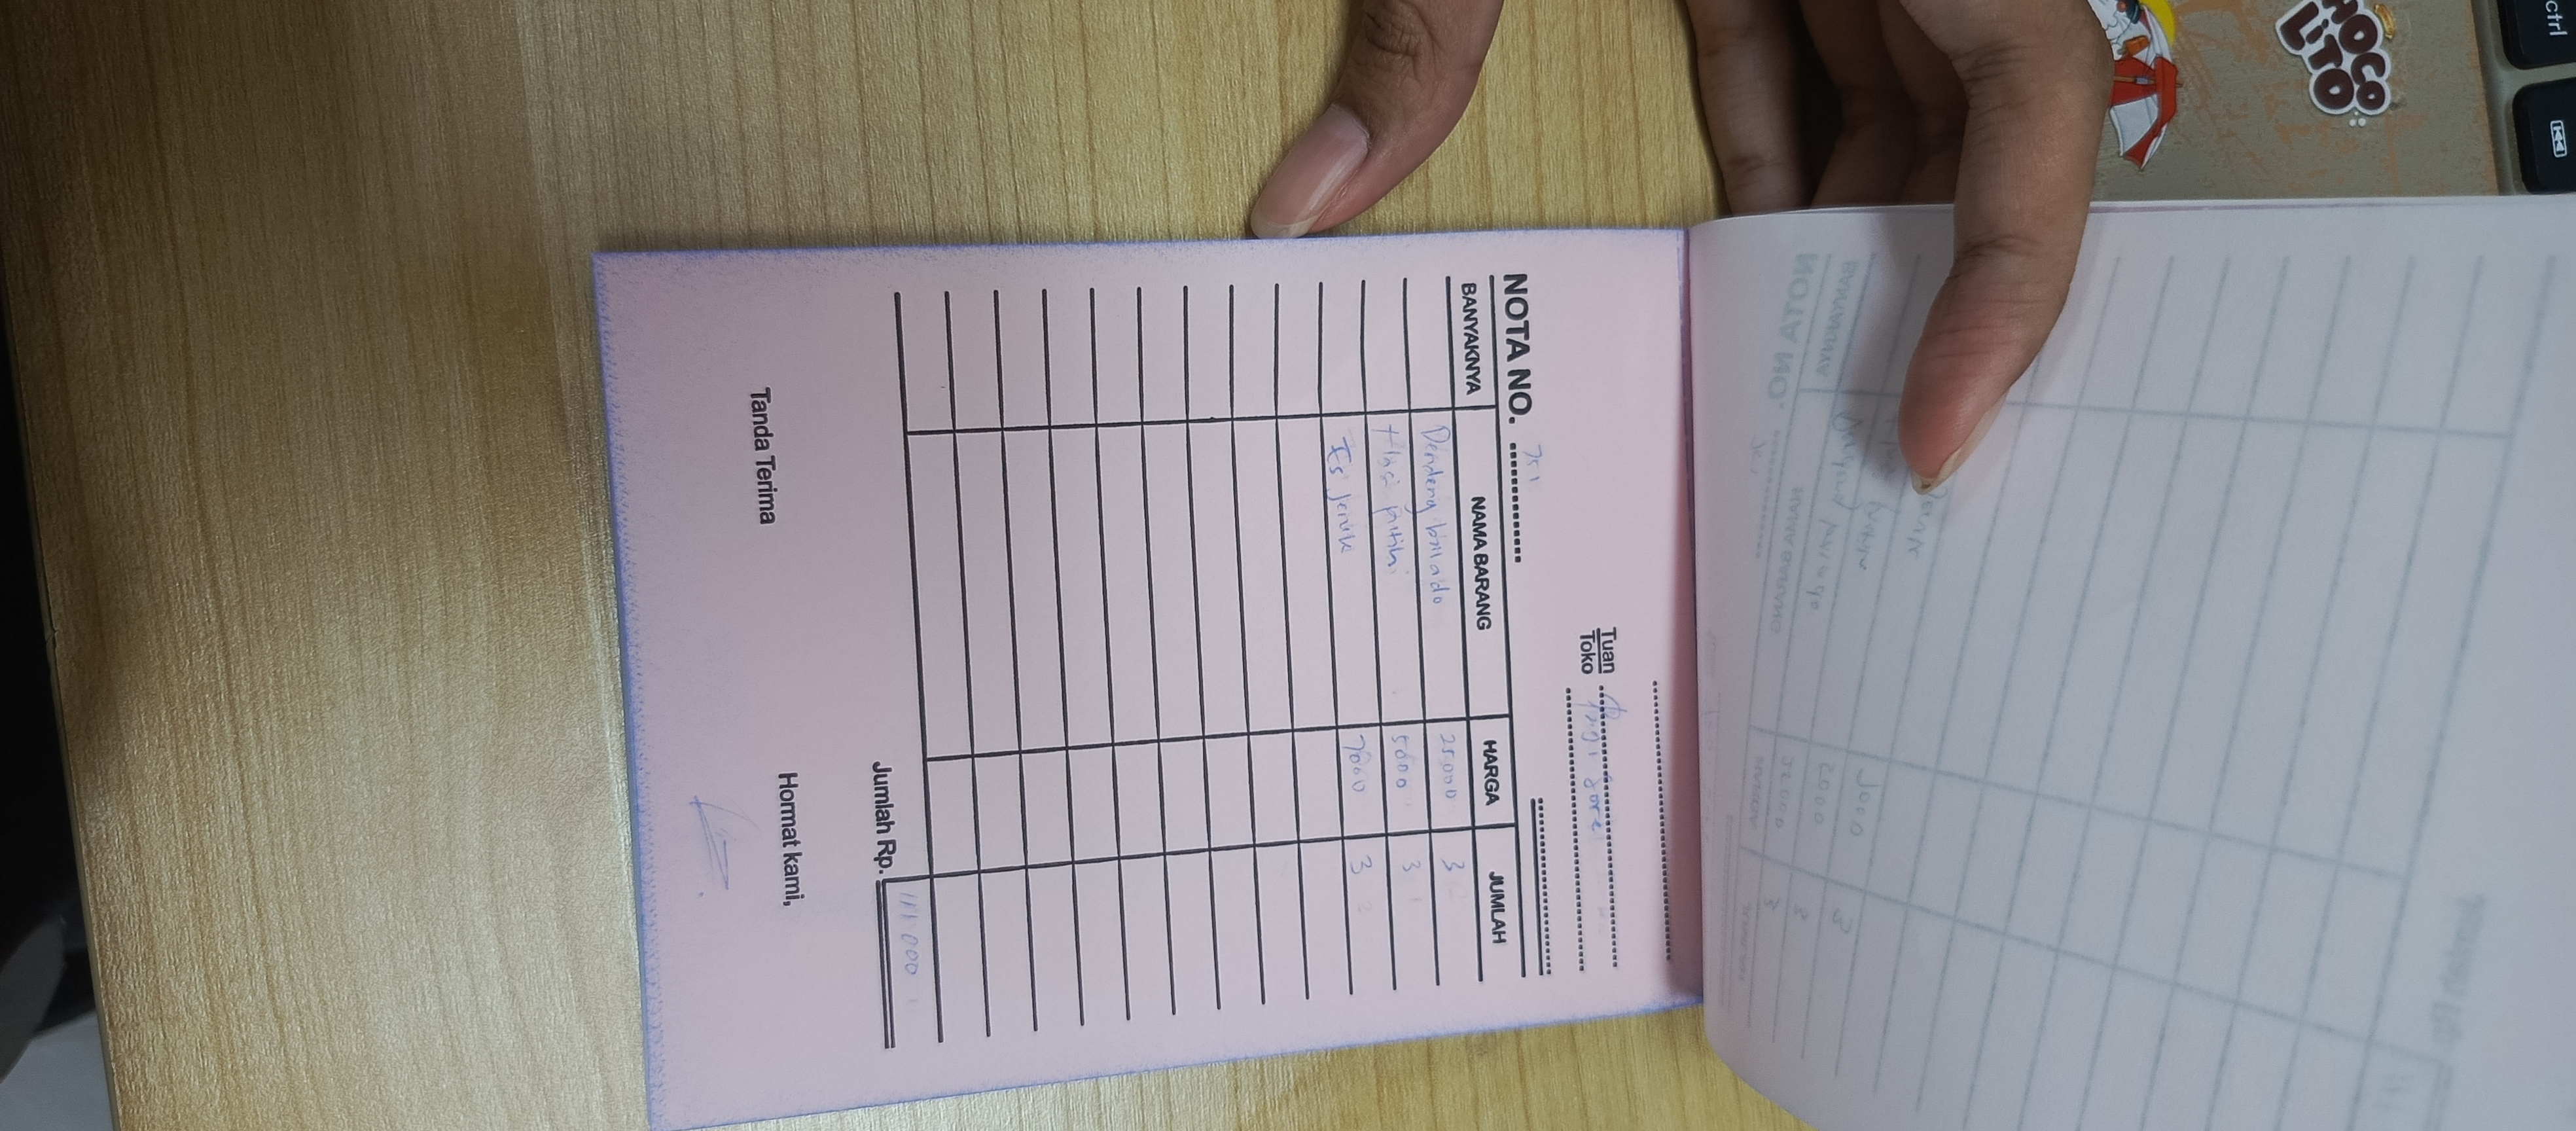 Tuan
Toko
NOTA NO. 751
BANYAKNYA NAMA BARANG HARGA JUMLAH
Dendeng balado 25.000 3
Nasi putih 5000 3
Es jeruk 7000 3
Jumlah Rp. 111.000
Tanda Terima Hormat kami,
CHOCO
LITO
ctrl